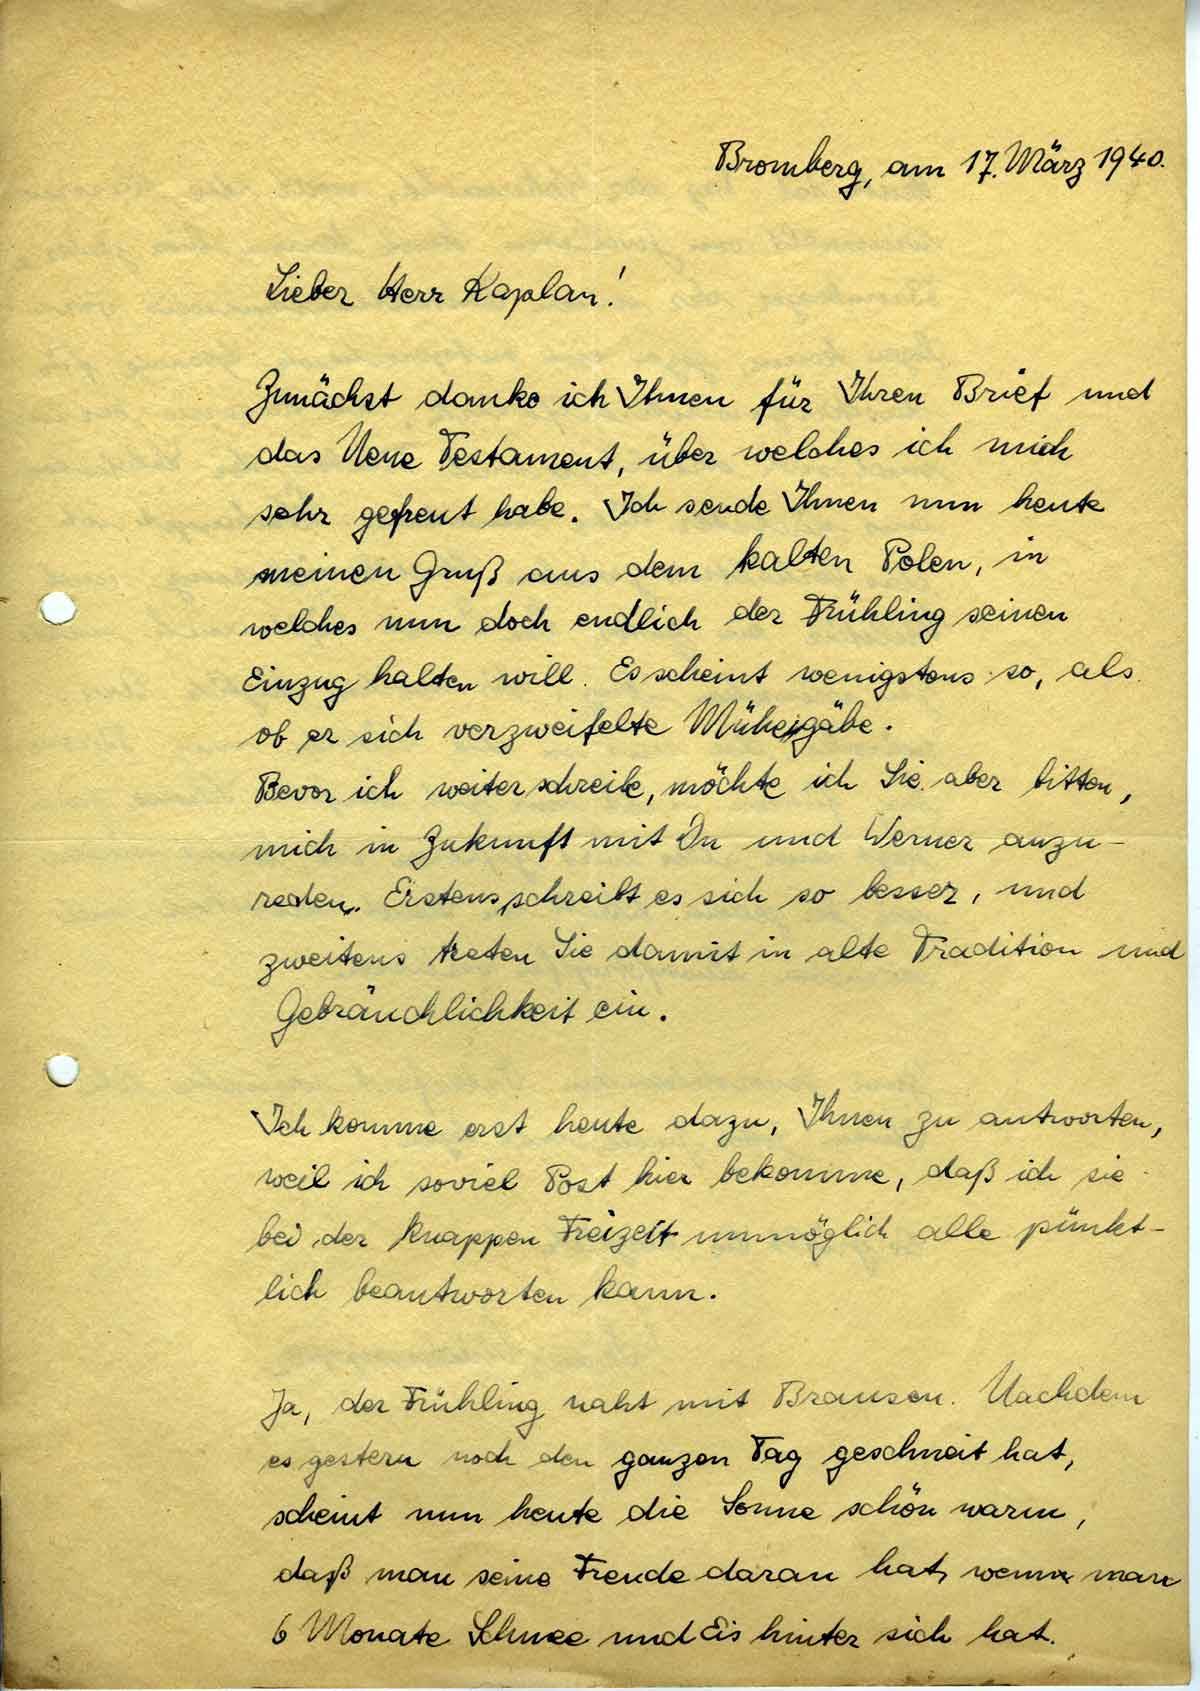 Bromberg, am 17. März 1940.
Lieber Herr Kaplan!
Zunächst danke ich Ihnen für Ihren Brief und
das Neue Testament, über welches ich mich
sehr gefreut habe. Ich sende Ihnen nun heute
meinen Gruß aus dem kalten Polen, in
welches nun doch endlich der Frühling seinen
Einzug halten will. Es scheint wenigstens so, als
ob er sich verzweifelte Mühe gäbe.
Bevor ich weiterschreibe, möchte ich Sie aber bitten,
mich in Zukunft mit Du und Werner anzu-
reden. Erstens schreibt es sich so besser, und
zweitens treten Sie damit in alte Tradition und
Gebräuchlichkeit ein.
Ich komme erst heute dazu, Ihnen zu antworten,
weil ich soviel Post hier bekomme, daß ich sie
bei der knappen Freizeit unmöglich alle pünkt-
lich beantworten kann.
Ja, der Frühling naht mit Brausen. Nachdem
es gestern noch den ganzen Tag geschneit hat,
scheint nun heute die Sonne schön warm,
daß man seine Freude daran hat, wenn man
6 Monate Schnee und Eis hinter sich hat.